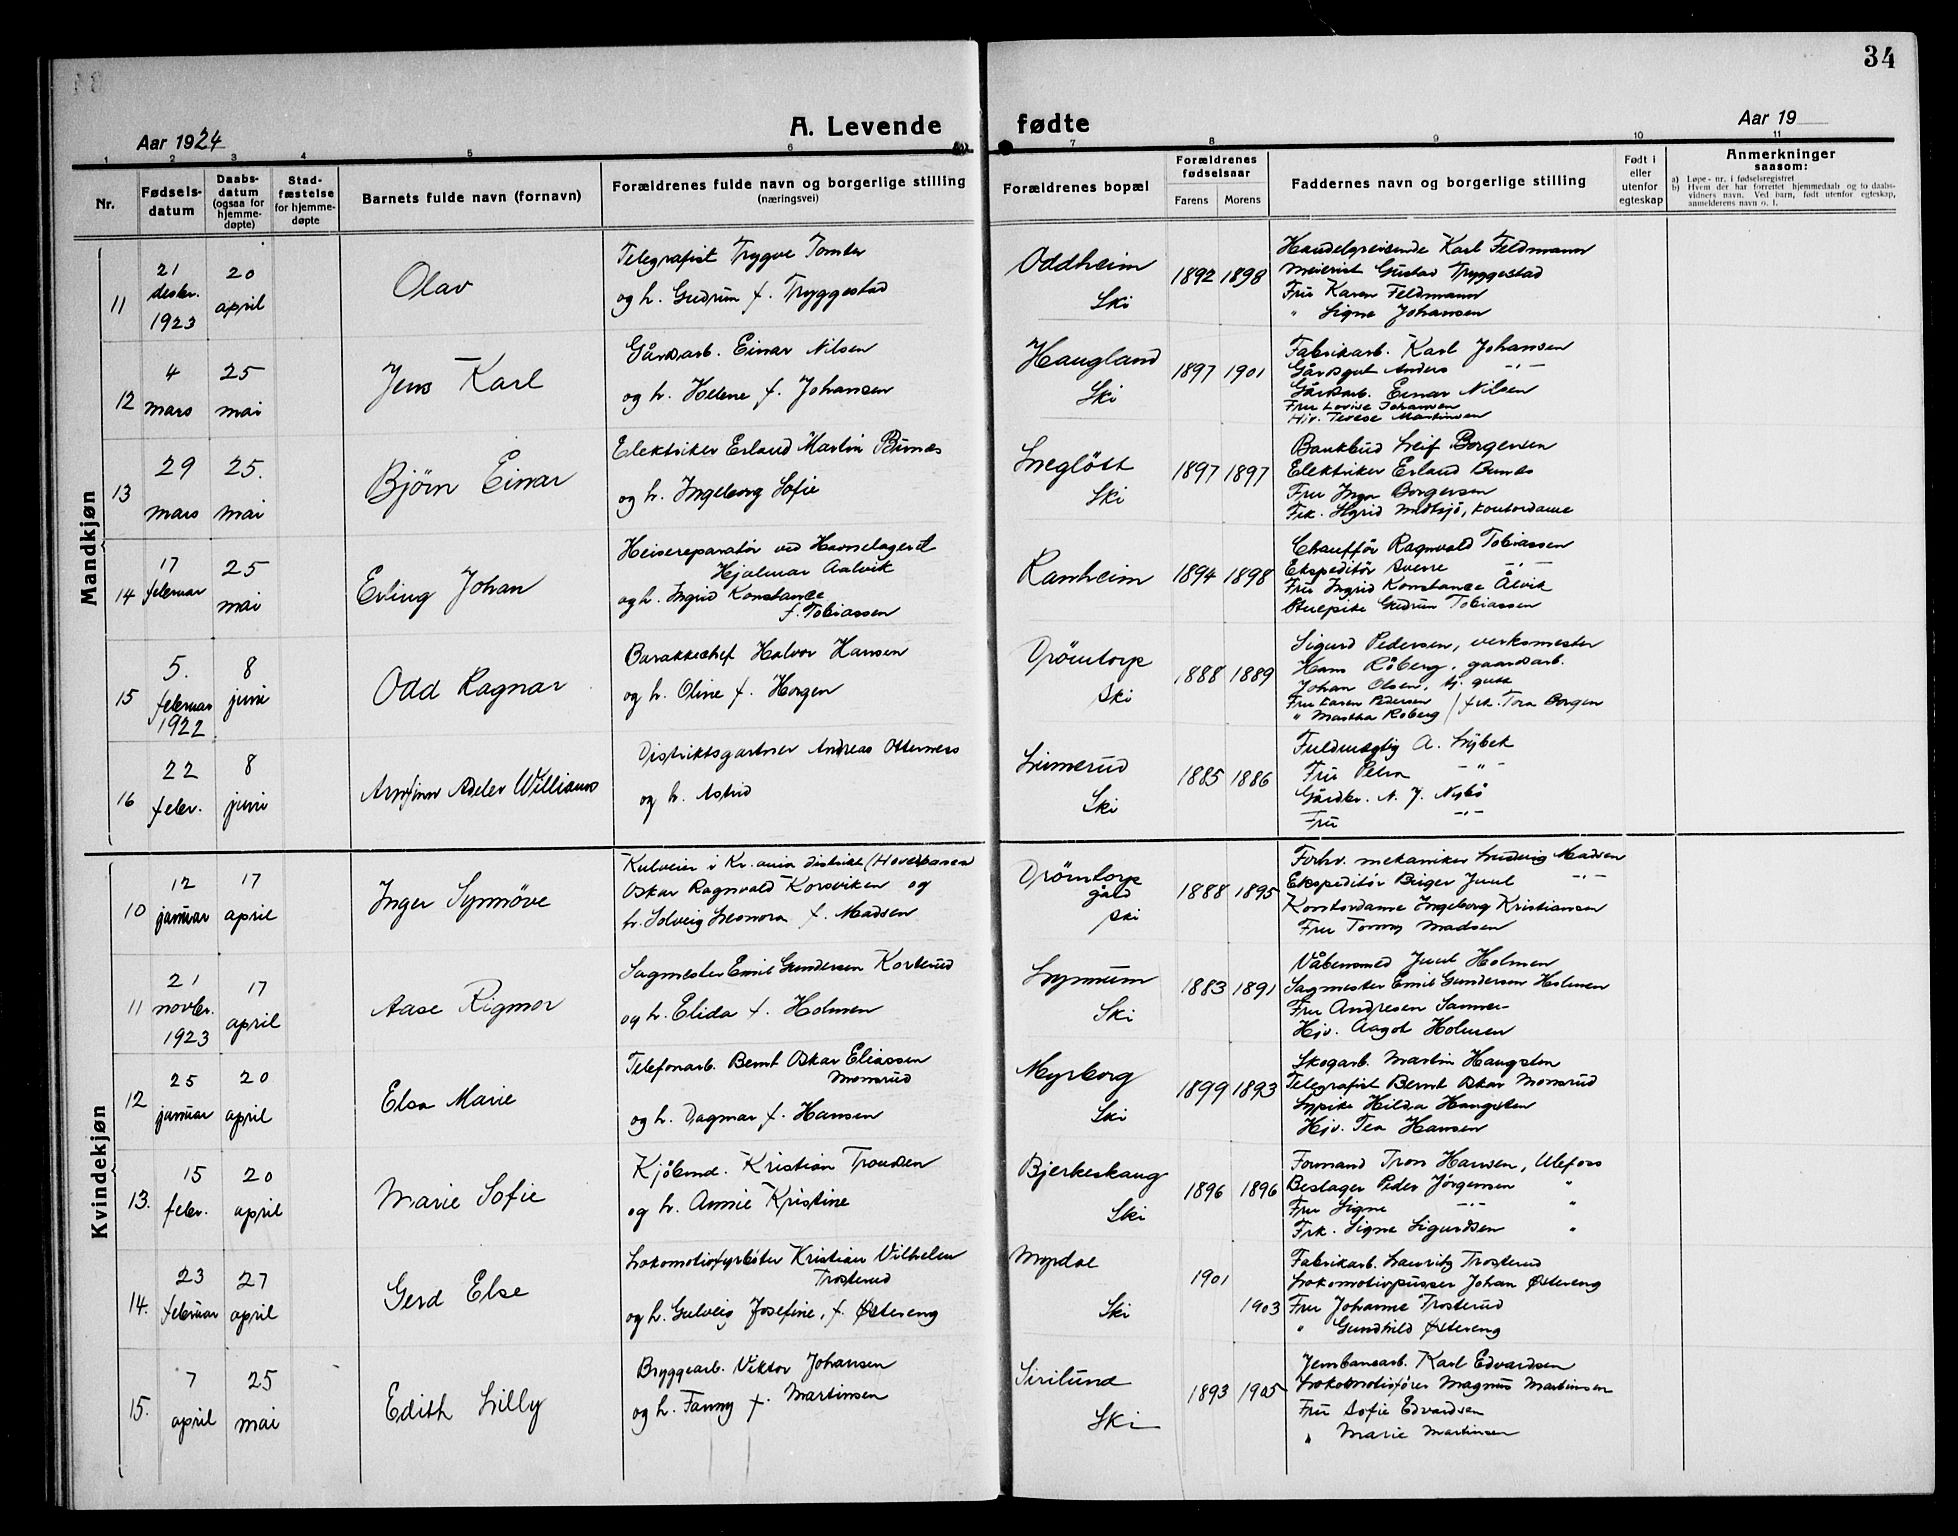 34
Aar 1924
A. Levende fødte
Aar 19
1 2 3 4 5 6 7 8 9 10 11
Nr.
Fødselsdatum
Daabsdatum (ogsaa for hjemmedøpte)
Stadfæstelse for hjemmedøpte
Barnets fulde navn (fornavn)
Forældrenes fulde navn og borgerlige stilling
(næringsvei)
Forældrenes bopæl
Forældrenes fødselsaar
Farens Morens
Faddernes navn og borgerlige stilling
Født i eller utenfor egteskap
Anmerkninger
saasom:
a) Løpe-nr. i fødselsregistret
b) Hvem der har forrettet hjemmedaab og to daabsvidners navn. Ved barn, født utenfor egteskap, anmelderens navn o. l.
Mandkjøn
11
21 desbr. 1923
20 april
Olav
Telegrafist Trygve Tomter
og h. Gudrun f. Tryggestad
Oddheim
Ski
1892 1898
Handelsreisende Karl Feldmann
Meierist Gustav Tryggestad
Fru Karen Feldmann
" Signe Johansen
12
4 mars
25 mai
Jens Karl
Gårdsarb. Einar Nilsen
og h. Helene f. Johansen
Haugland
Ski
1897 1901
Fabrikarb. Karl Johansen
Gårdsgut Anders -"-
Gårdsarb. Einar Nilsen
Fru Lovise Johansen
Hjv. Terese Martinsen
13
29 mars
25. mai
Bjørn Einar
Elektriker Erland Martin Bunæs
og h. Ingeborg Sofie
Ski
1897 1897
Bankbud Leif Borgersen
Elektriker Erland Bunæs
Fru Inga Borgersen
Frk. Sigrid Midtsjö, kontordame
14
17 februar
25 mai
Erling Johan
Heisereparatör ved Havnelageret
Hjalmar Aalvik
og h. Ingrid Konstance
f. Tobiassen
Ramheim
1894 1898
Chauffør Ragnvald Tobiassen
Ekspeditör Sverre -"-
Fru Ingrid Konstance Ålvik
Stuepike Gudrun Tobiassen
15
5. februar 1922
8 juni
Odd Ragnar
Barakkechef Halvor Hansen
og h. Oline f. Horgen
Drömtorp
Ski
1888 1889
Sigurd Pedersen, verksmester
Hans Råberg, gaardsarb.
Johan Olsen, tj. gutt
Fru Karen Pedersen
" Martha Roberg / frk. Tora Borgen
16
22 febr.
8 juni
Arnfinn Adeler Williams
Distriktsgartner Andreas Otternæs
og h. Astrid
Limerud
Ski
1885 1886
Fuldmægtig A. Lybek
Fru Petra -"-
Gårdbr. N. J. Nybö
Fru -"-
Kvindekjøn
10
12 januar
17 april
Inger Synnöve
Kulveier i Kr.ania distrikt (Hovedbanen
Oskar Ragnvald Korsviken og
h. Solveig Leonora f. Madsen
Drömtorp
gård
Ski
1888 1895
Forhv. mekaniker Ludvig Madsen
Ekspeditör Birger Juul -"-
Kontordame Ingeborg Kristiansen
Fru Tommy Madsen
11
21 novbr. 1923
17 april
Aase Rigmor
Sagmester Emil Gundersen Korterud
og h. Elida f. Holmen
Lynnum
Ski
1883 1891
Våbensmed Juul Holmen
Sagmester Emil Gundersen Holmen
Fru Andresen Sanner
Hjv. Aagot Holmen
12
25 januar
20 april
Elsa Marie
Telefonarb. Bernt Oskar Eliassen
Monsrud
og h. Dagmar f. Hansen
Myrborg
Ski
1899 1893
Skogarb. Martin Haugsten
Telegrafist Bernt Oskar Monsrud
Sypike Hilda Haugsten
Hjv. Tea Hansen
13.
15 febr.
20 april
Marie Sofie
Kjöbmd. Kristian Trondsen
og h. Annie Kristine
Bjerkeskaug
Ski
1896 1896
Formand Tron Hansen, Ulefoss
Beslager Peder Jörgensen "
Fru Signe -"- "
Frk. Signe Sigurdsen "
14.
23 februar
27 april
Gerd Else
Lokomotivfyrböter Kristian Vilhelm
Trosterud
og h. Gulveig Josefine, f. Østereng
Myrdal
Ski
1901
1903
Fabrikarb. Lauritz Trosterud
Lokomotivpusser Johan Østereng
Fru Johanne Trosterud
" Gundhild Østereng
15.
7 april
25 mai
Edith Lilly
Bryggearb. Viktor Johansen
og h. Fanny f. Martinsen
Sirilund
Ski
1893 1905
Jernbanearb. Karl Edvardsen
Lokomotivfører Magnus Martinsen
Fru Sofie Edvardsen
" Marie Martinsen